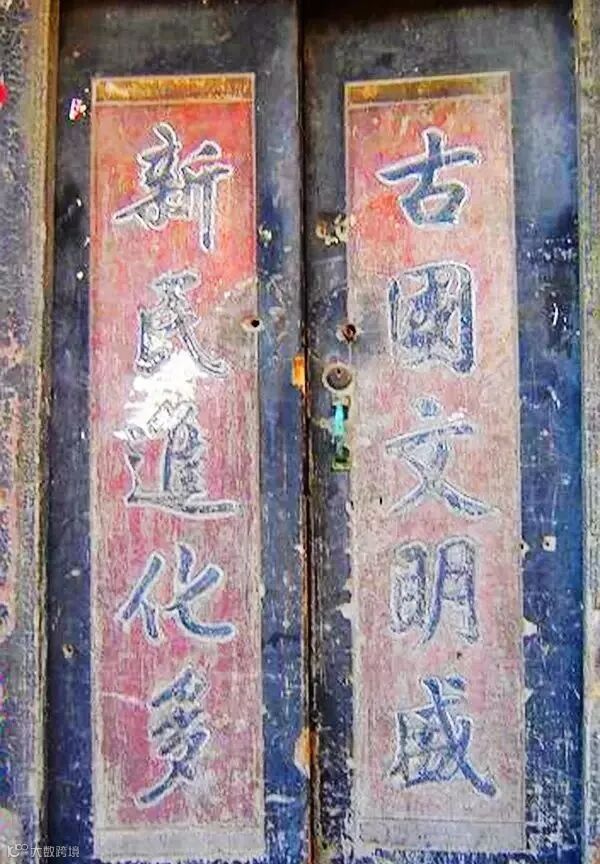 古國文明盛
新民進化多
大数跨境